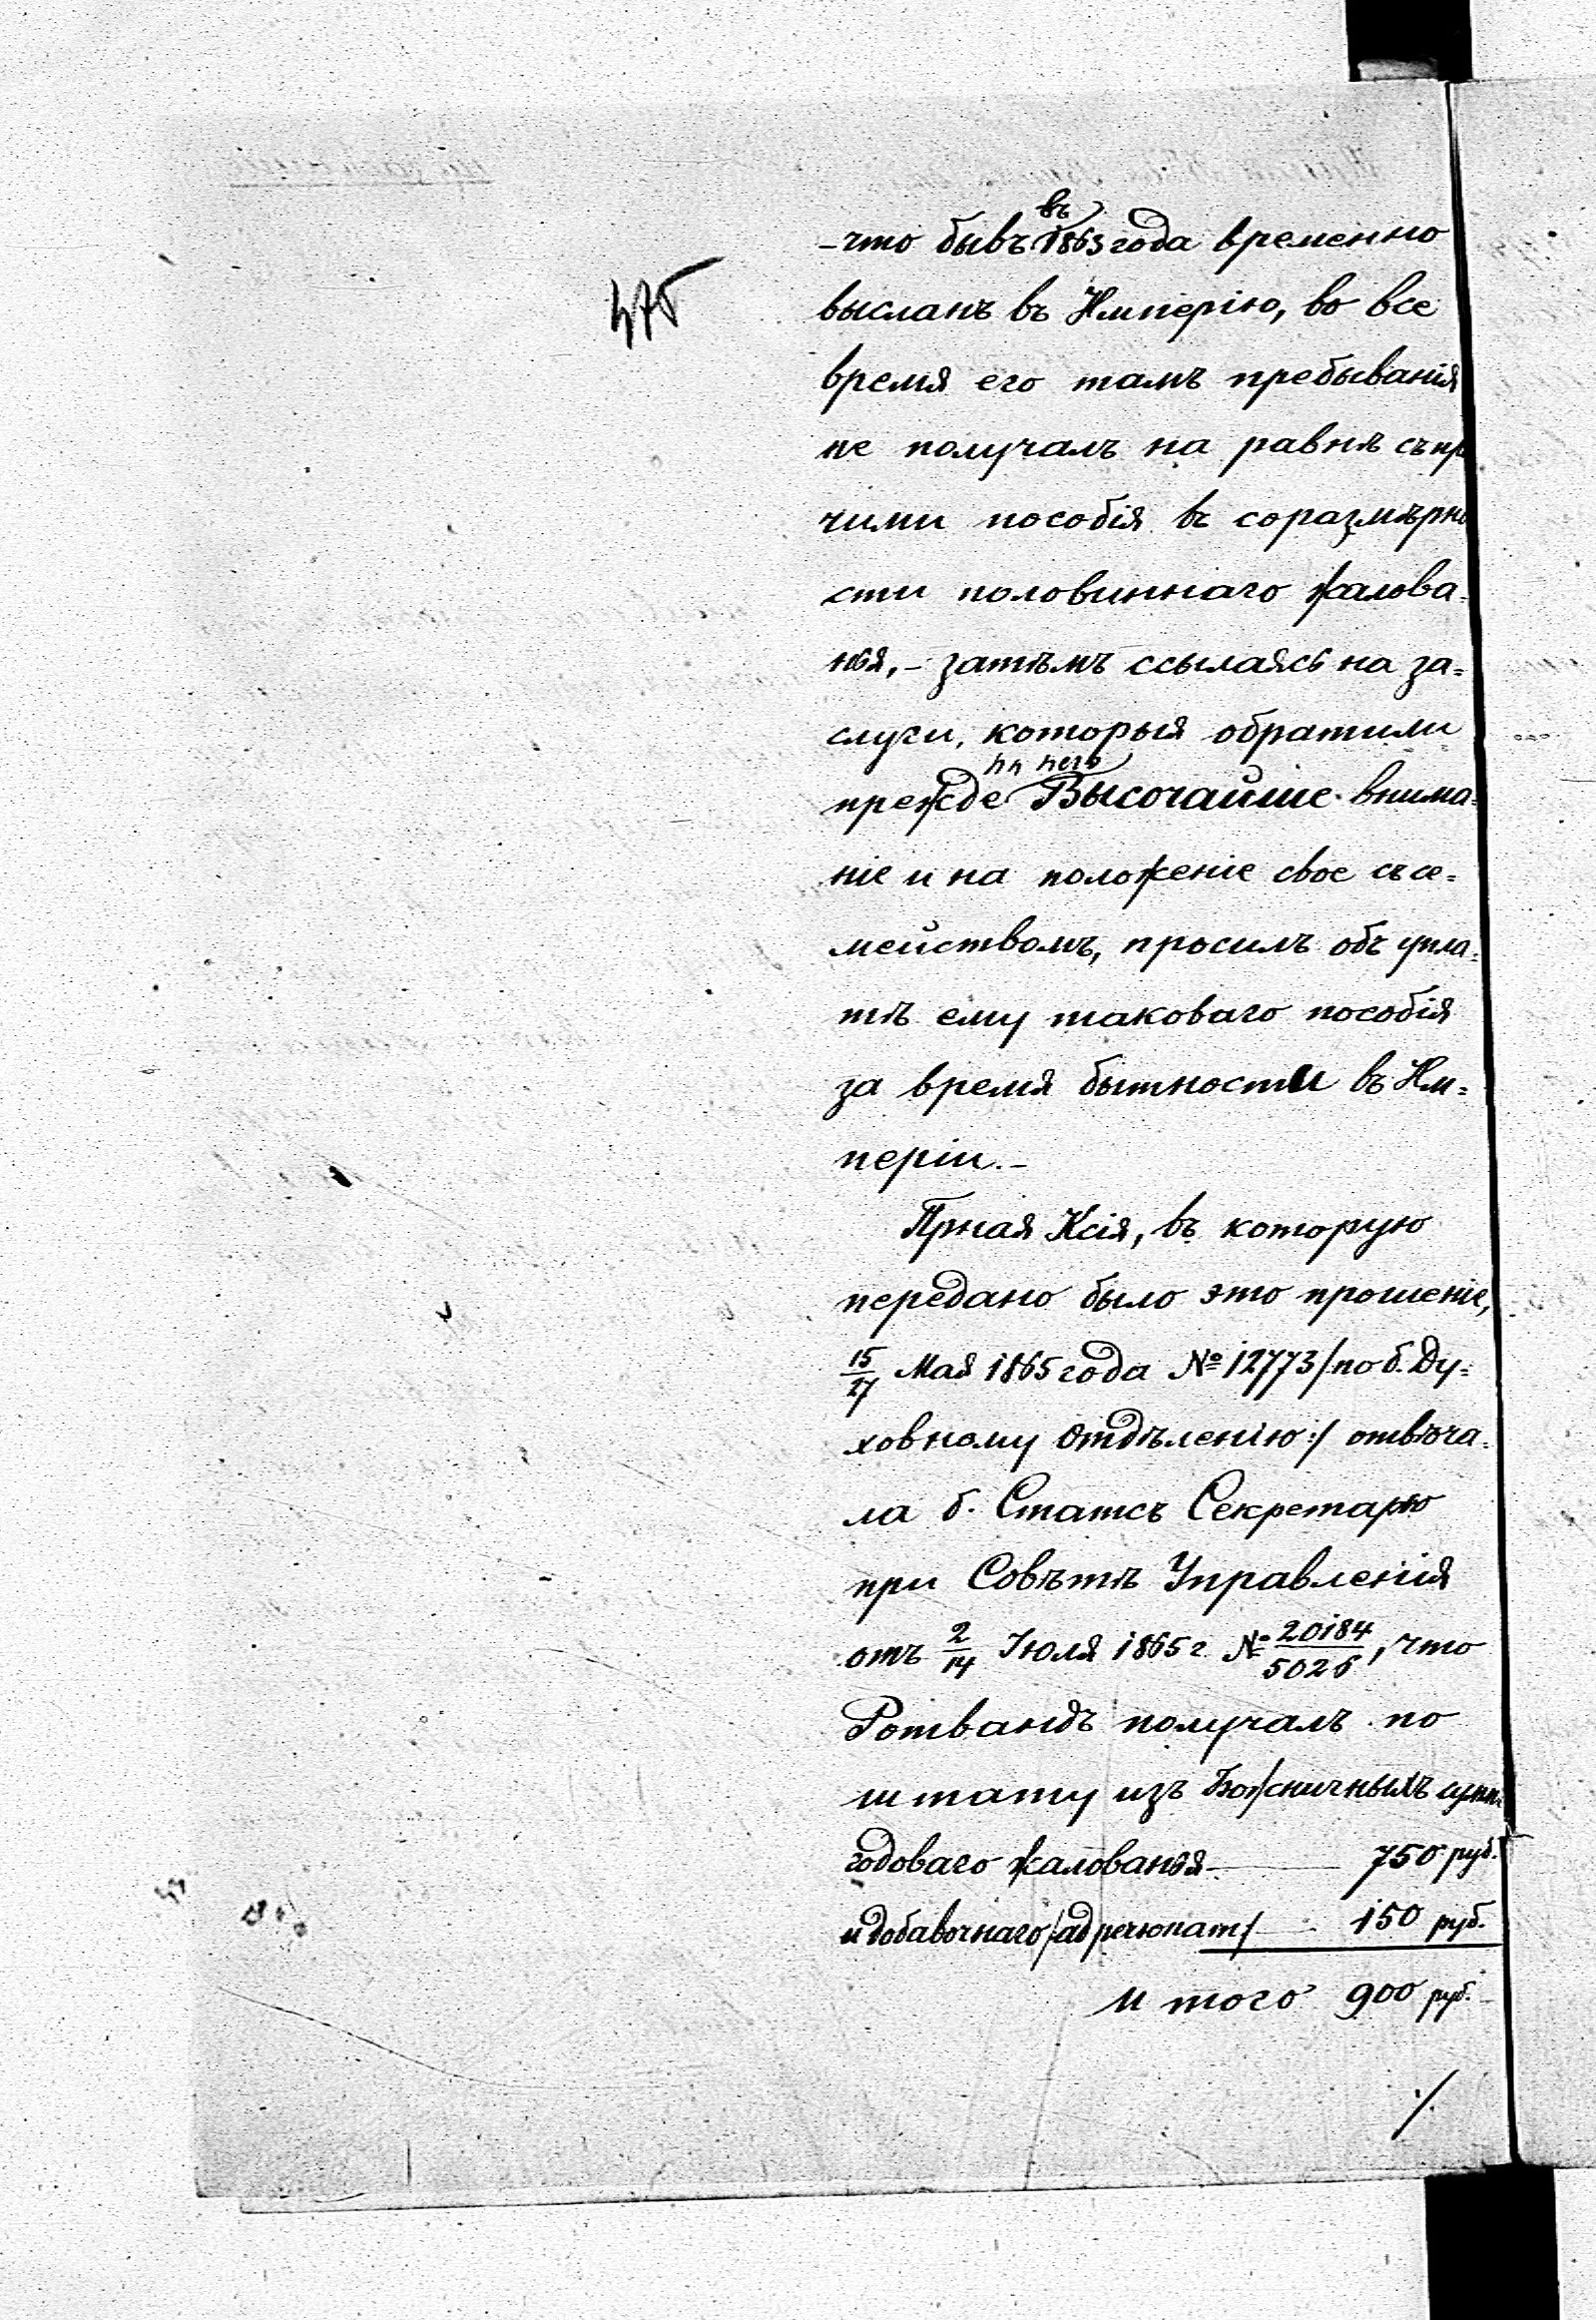 въ
-что бывъ 1863 года временно
высланъ въ Имперію, во все
475
время его тамъ пребыванія
не получалъ на равнѣ съ пр
чими пособія въ соразмѣрно
сти половиннаго жалова-
нья, - затѣмъ ссылаясь на за=
слуги, которыя обратили
на него
прежде Высочайше внима=
ніе и на положеніе свое съ се=
мействомъ, просилъ объ упла=
тѣ ему таковаго пособія
за время бытности въ Им=
періи. -
Прная Ксія, въ которую
передано было это прошеніе,
15/27 Мая 1865 года № 12773 /по б. Ду=
ховному Отдѣленію:/ отвѣча=
ла б. Статсъ Секретарю
при Совѣтѣ Управленія
отъ 2/14 Іюля 1865 г. № 20184/5026, что
Ротвандъ получалъ по
штату изъ Божничныхъ сумм
годоваго жалованья - 750 руб.
и добавочнаго /ад персонам/ - 150 руб.
И того 900 руб. -
./.